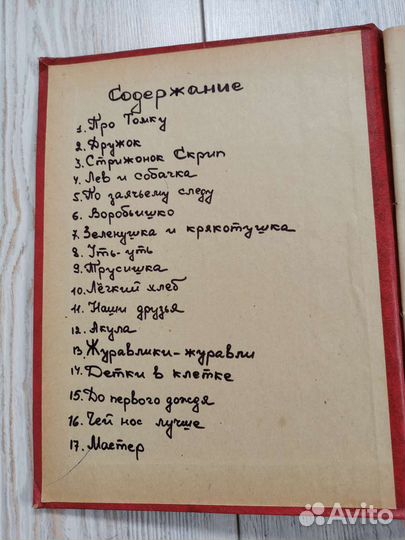 Содержание
1. Про Томку
2. Дружок
3. Стрижонок Скрип
4. Лев и собачка
5. По заячьему следу
6. Воробьишко
7. Зеленушка и крякотушка
8. Уть-уть
9. Трусишка
10. Лёгкий хлеб
11. Наши друзья
12. Акула
13. Журавлики-журавли
14. Детки в клетке
15. До первого дождя
16. Чей нос лучше
17. Мастер
Avito